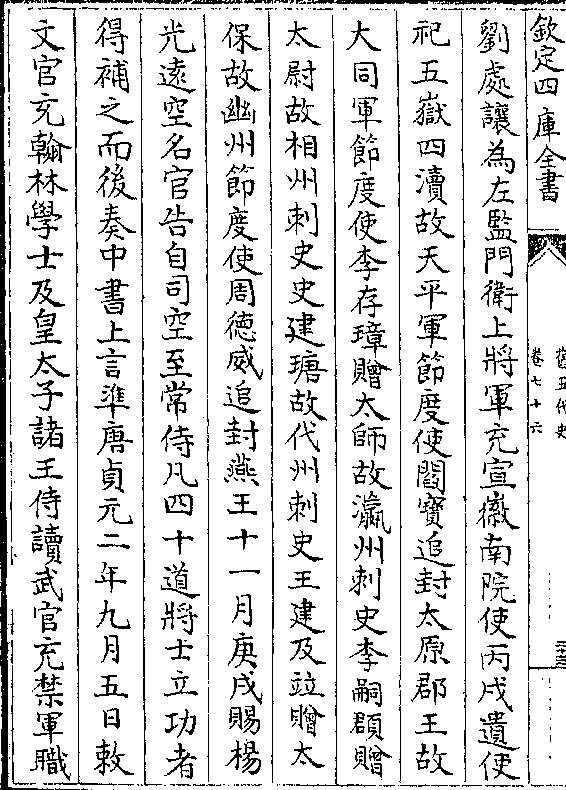 欽定四庫全書
舊五代史
卷七十六
劉處讓為左監門衛上將軍充宣徽南院使丙戌遣使
祀五嶽四瀆故天平軍節度使閻寶追封太原郡王故
大同軍節度使李存璋贈太師故瀛州刺史李嗣頵贈
太尉故相州刺史史建瑭故代州刺史王建及竝贈太
保故幽州節度使周德威追封燕王十一月庚戌賜楊
光遠空名官告自司空至常侍凡四十道將士立功者
得補之而後奏中書上言準唐貞元二年九月五日敕
文官充翰林學士及皇太子諸王侍讀武官充禁軍職